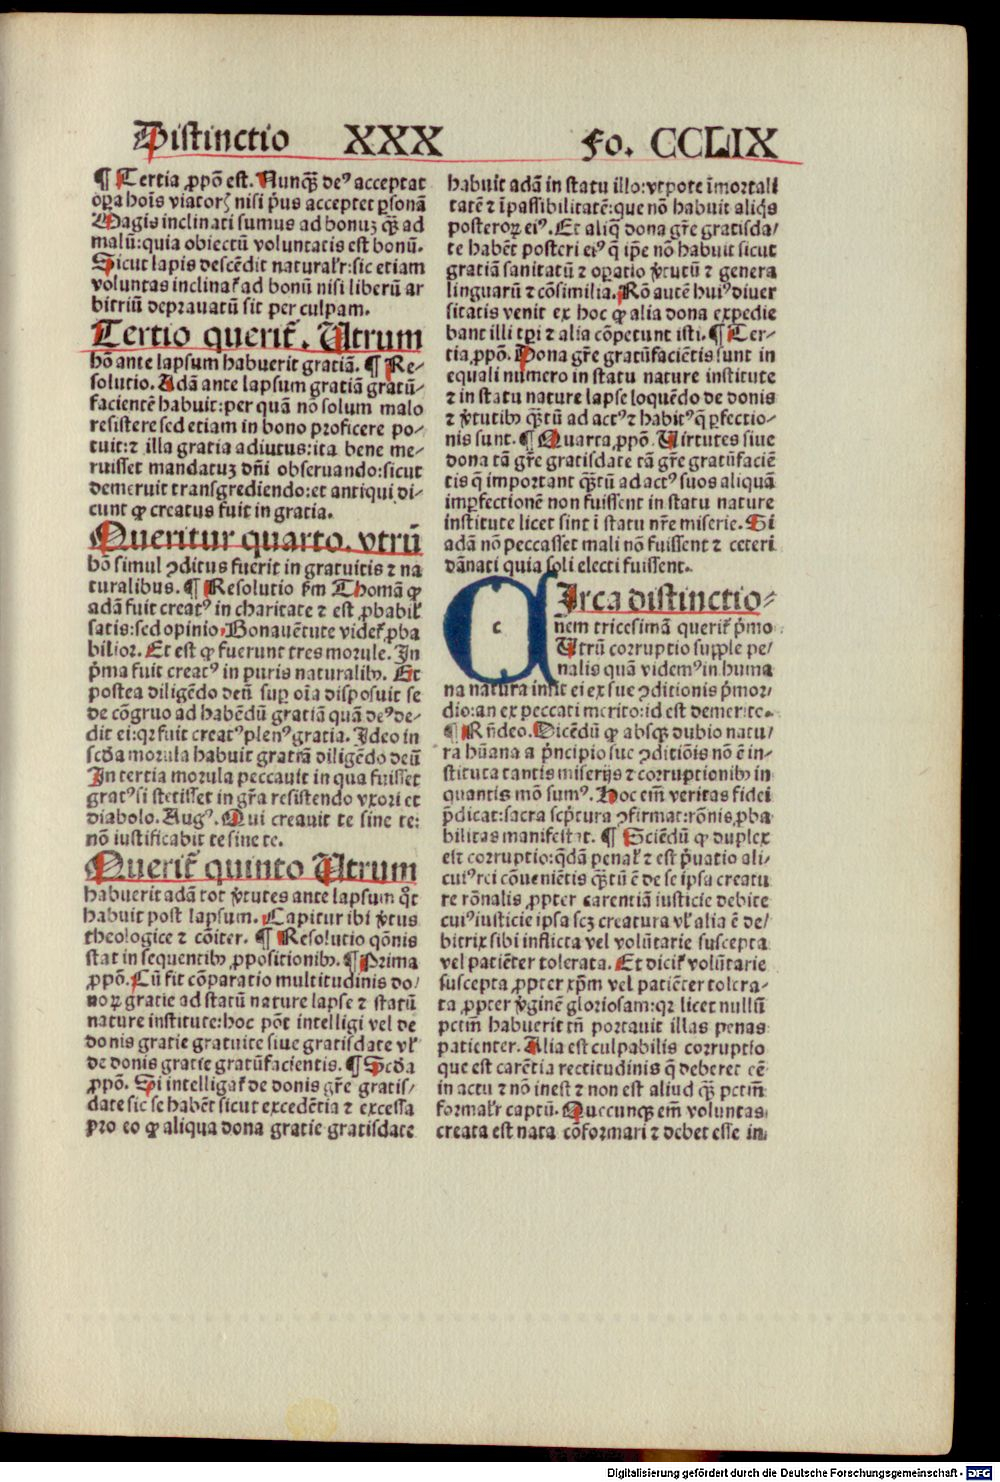 Distinctio XXX Fo. CCLIX
¶ Tertia ꝓpō est. Nunqꝫ̄ deꝰ acceptat
oꝑa hoīs viatorꝭ nisi p̄us acceptet ꝑsonā
Magis inclinati sumus ad bonuꝫ qꝫ̄ ad
malū: quia obiectū voluntatis est bonū.
Sicut lapis descēdit naturalʼr: sic etiam
voluntas inclinat᷑ ad bonū nisi liberū ar
bitriū deprauatū sit per culpam.
Tertio querit᷑. Utrum
hō ante lapsum habuerit gratiā. ¶ Re⸗
solutio. Adā ante lapsum gratiā gratū⸗
facientē habuit: per quā nō solum malo
resistere sed etiam in bono proficere po⸗
tuit: ⁊ illa gratia adiutus: ita bene me⸗
ruisset mandatuꝫ dn̄i obseruando: sicut
demeruit transgrediendo: et antiqui di⸗
cunt ꝙ creatus fuit in gratia.
Queritur quarto. vtrū
hō simul ꝯditus fuerit in gratuitis ⁊ na
turalibus. ¶ Resolutio ẜm Thomā ꝙ
adā fuit creatꝰ in charitate ⁊ est ꝓbabilʼ
satis: sed opinio Bonauēture videt᷑ ꝓba
bilior. Et est ꝙ fuerunt tres morule. In
p̄ma fuit creatꝰ in puris naturalibꝰ. Et
postea diligēdo deū suꝑ oīa disposuit se
de cōgruo ad habēdū gratiā quā deꝰ de⸗
dit ei: qꝛ fuit creatꝰ plenꝰ gratia. Ideo in
scd̄a morula habuit gratiā diligēdo deū
In tertia morula peccauit in qua fuisset
gratꝰ si stetisset in gr̄a resistendo vxori et
diabolo. Augꝰ. Qui creauit te sine te:
nō iustificabit te sine te.
Querit᷑ quinto Utrum
habuerit adā tot v̓tutes ante lapsum qͦt
habuit post lapsum. Capitur ibi v̓tus
theologice ⁊ cōiter. ¶ Resolutio qōnis
stat in sequentibꝰ ꝓpositionibꝰ. ¶ Prima
ꝓpō. Cū fit cōparatio multitudinis do⸗
noꝝ gratie ad statū nature lapse ⁊ statū
nature institute: hoc pōt intelligi vel de
donis gratie gratuite siue gratisdate vlʼ
de donis gratie gratūfacientis. ¶ Scd̄a
ꝓpō. Si intelligat᷑ de donis gr̄e gratis⸗
date sic se habēt sicut excedētia ⁊ excessa
pro eo ꝙ aliqua dona gratie gratisdate
habuit adā in statu illo: vtpote īmortali
tatē ⁊ īpassibilitatē: que nō habuit aliqͥs
posteroꝝ eiꝰ. Et aliq̄ dona gr̄e gratisda⸗
te habēt posteri eiꝰ q̄ ip̄e nō habuit sicut
gratiā sanitatū ⁊ oꝑatio v̓tutū ⁊ genera
linguarū ⁊ cōsimilia. Rō autē huiꝰ diuer
sitatis venit ex hoc ꝙ alia dona expedie
bant illi tꝑi ⁊ alia cōpetunt isti. ¶ Ter⸗
tia ꝓpō. Dona gr̄e gratūfaciētis sunt in
equali numero in statu nature institute
⁊ in statu nature lapse loquēdo de donis
⁊ v̓tutibꝰ qꝫ̄tū ad actꝰ ⁊ habitꝰ q̄ ꝑfectio⸗
nis sunt. ¶ Quarta ꝓpō. Virtutes siue
dona tā gr̄e gratisdate tā gr̄e gratūfaciē
tis q̄ important qꝫ̄tū ad actꝰ suos aliquā
imꝑfectionē non fuissent in statu nature
institute licet sint ī statu nr̄e miserie. Si
adā nō peccasset mali nō fuissent ⁊ ceteri
dānati quia soli electi fuissent.
CIrca distinctio⸗
nem tricesimā querit᷑ p̄mo
Utrū corruptio supple pe⸗
nalis quā videmꝰ in huma
na natura insit ei ex sue ꝯditionis p̄mor⸗
dio: an ex peccati merito: id est demerite.
¶ Rn̄deo. Dicēdū ꝙ absqꝫ dubio natu⸗
ra hūana a p̄ncipio sue ꝯditiōis nō ē in⸗
stituta tantis miserijs ⁊ corruptionibꝰ in
quantis mō sumꝰ. Hoc em̄ veritas fidei
p̄dicat: sacra scp̄tura ꝯfirmat: rōnis ꝓba
bilitas manifestat. ¶ Sciēdū ꝙ duplex
est corruptio: qd̄ā penalʼ ⁊ est p̄uatio ali⸗
cuiꝰ rei cōueniētis qꝫ̄tū ē de se ipsa creatu
re rōnalis ꝓpter carentiā iusticie debite
cuiꝰ iusticie ipsa scꝫ creatura vlʼ alia ē de⸗
bitrix sibi inflicta vel volūtarie suscepta
vel patiēter tolerata. Et dicit᷑ volūtarie
suscepta ꝓpter xp̄m vel patiēter tolera⸗
ta ꝓpter v̓ginē gloriosam: qꝛ licet nullū
pctm̄ habuerit tn̄ portauit illas penas
patienter. Alia est culpabilis corruptio
que est carētia rectitudinis q̄ deberet eē
in actu ⁊ nō inest ⁊ non est aliud qꝫ̄ pctm̄
formalʼr captū. Quecunqꝫ em̄ voluntas
creata est nata cōformari ⁊ debet esse in
c
Digitalisierung gefördert durch die Deutsche Forschungsgemeinschaft - DFG